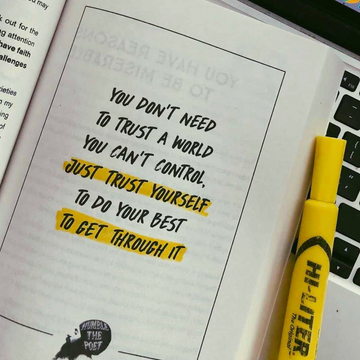 k out for the
ng attention
have faith
allenges
YOU DON'T NEED
TO TRUST A WORLD
YOU CAN'T CONTROL,
JUST TRUST YOURSELF
TO DO YOUR BEST
TO GET THROUGH IT
HUMBLE
THE
POET
HI-LITER
The Original